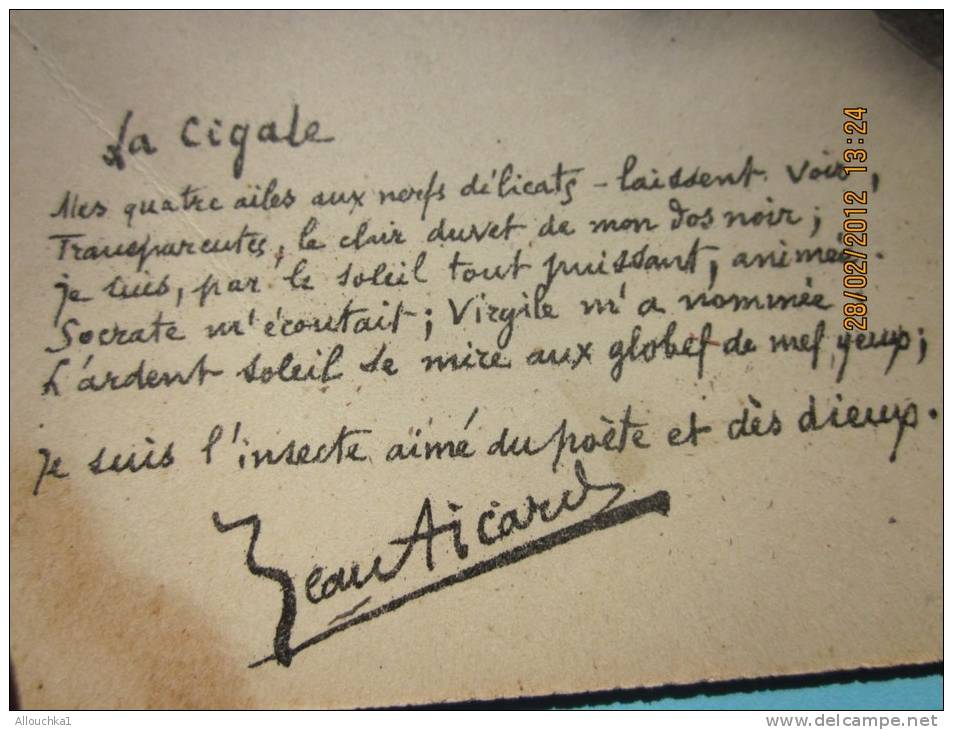 La Cigale
Mes quatre ailes aux nerfs délicats - laissent voir,
Transparentes, le clair duvet de mon dos noir ;
Je suis, par le soleil tout puissant, animée.
Socrate m'écoutait ; Virgile m'a nommée
L'ardent soleil se mire aux globes de mes yeux ;
Je suis l'insecte aïmé du poète et dès dieux.
Jean Aicard
28/02/2012 13:24
Allouchka1
www.delcampe.net